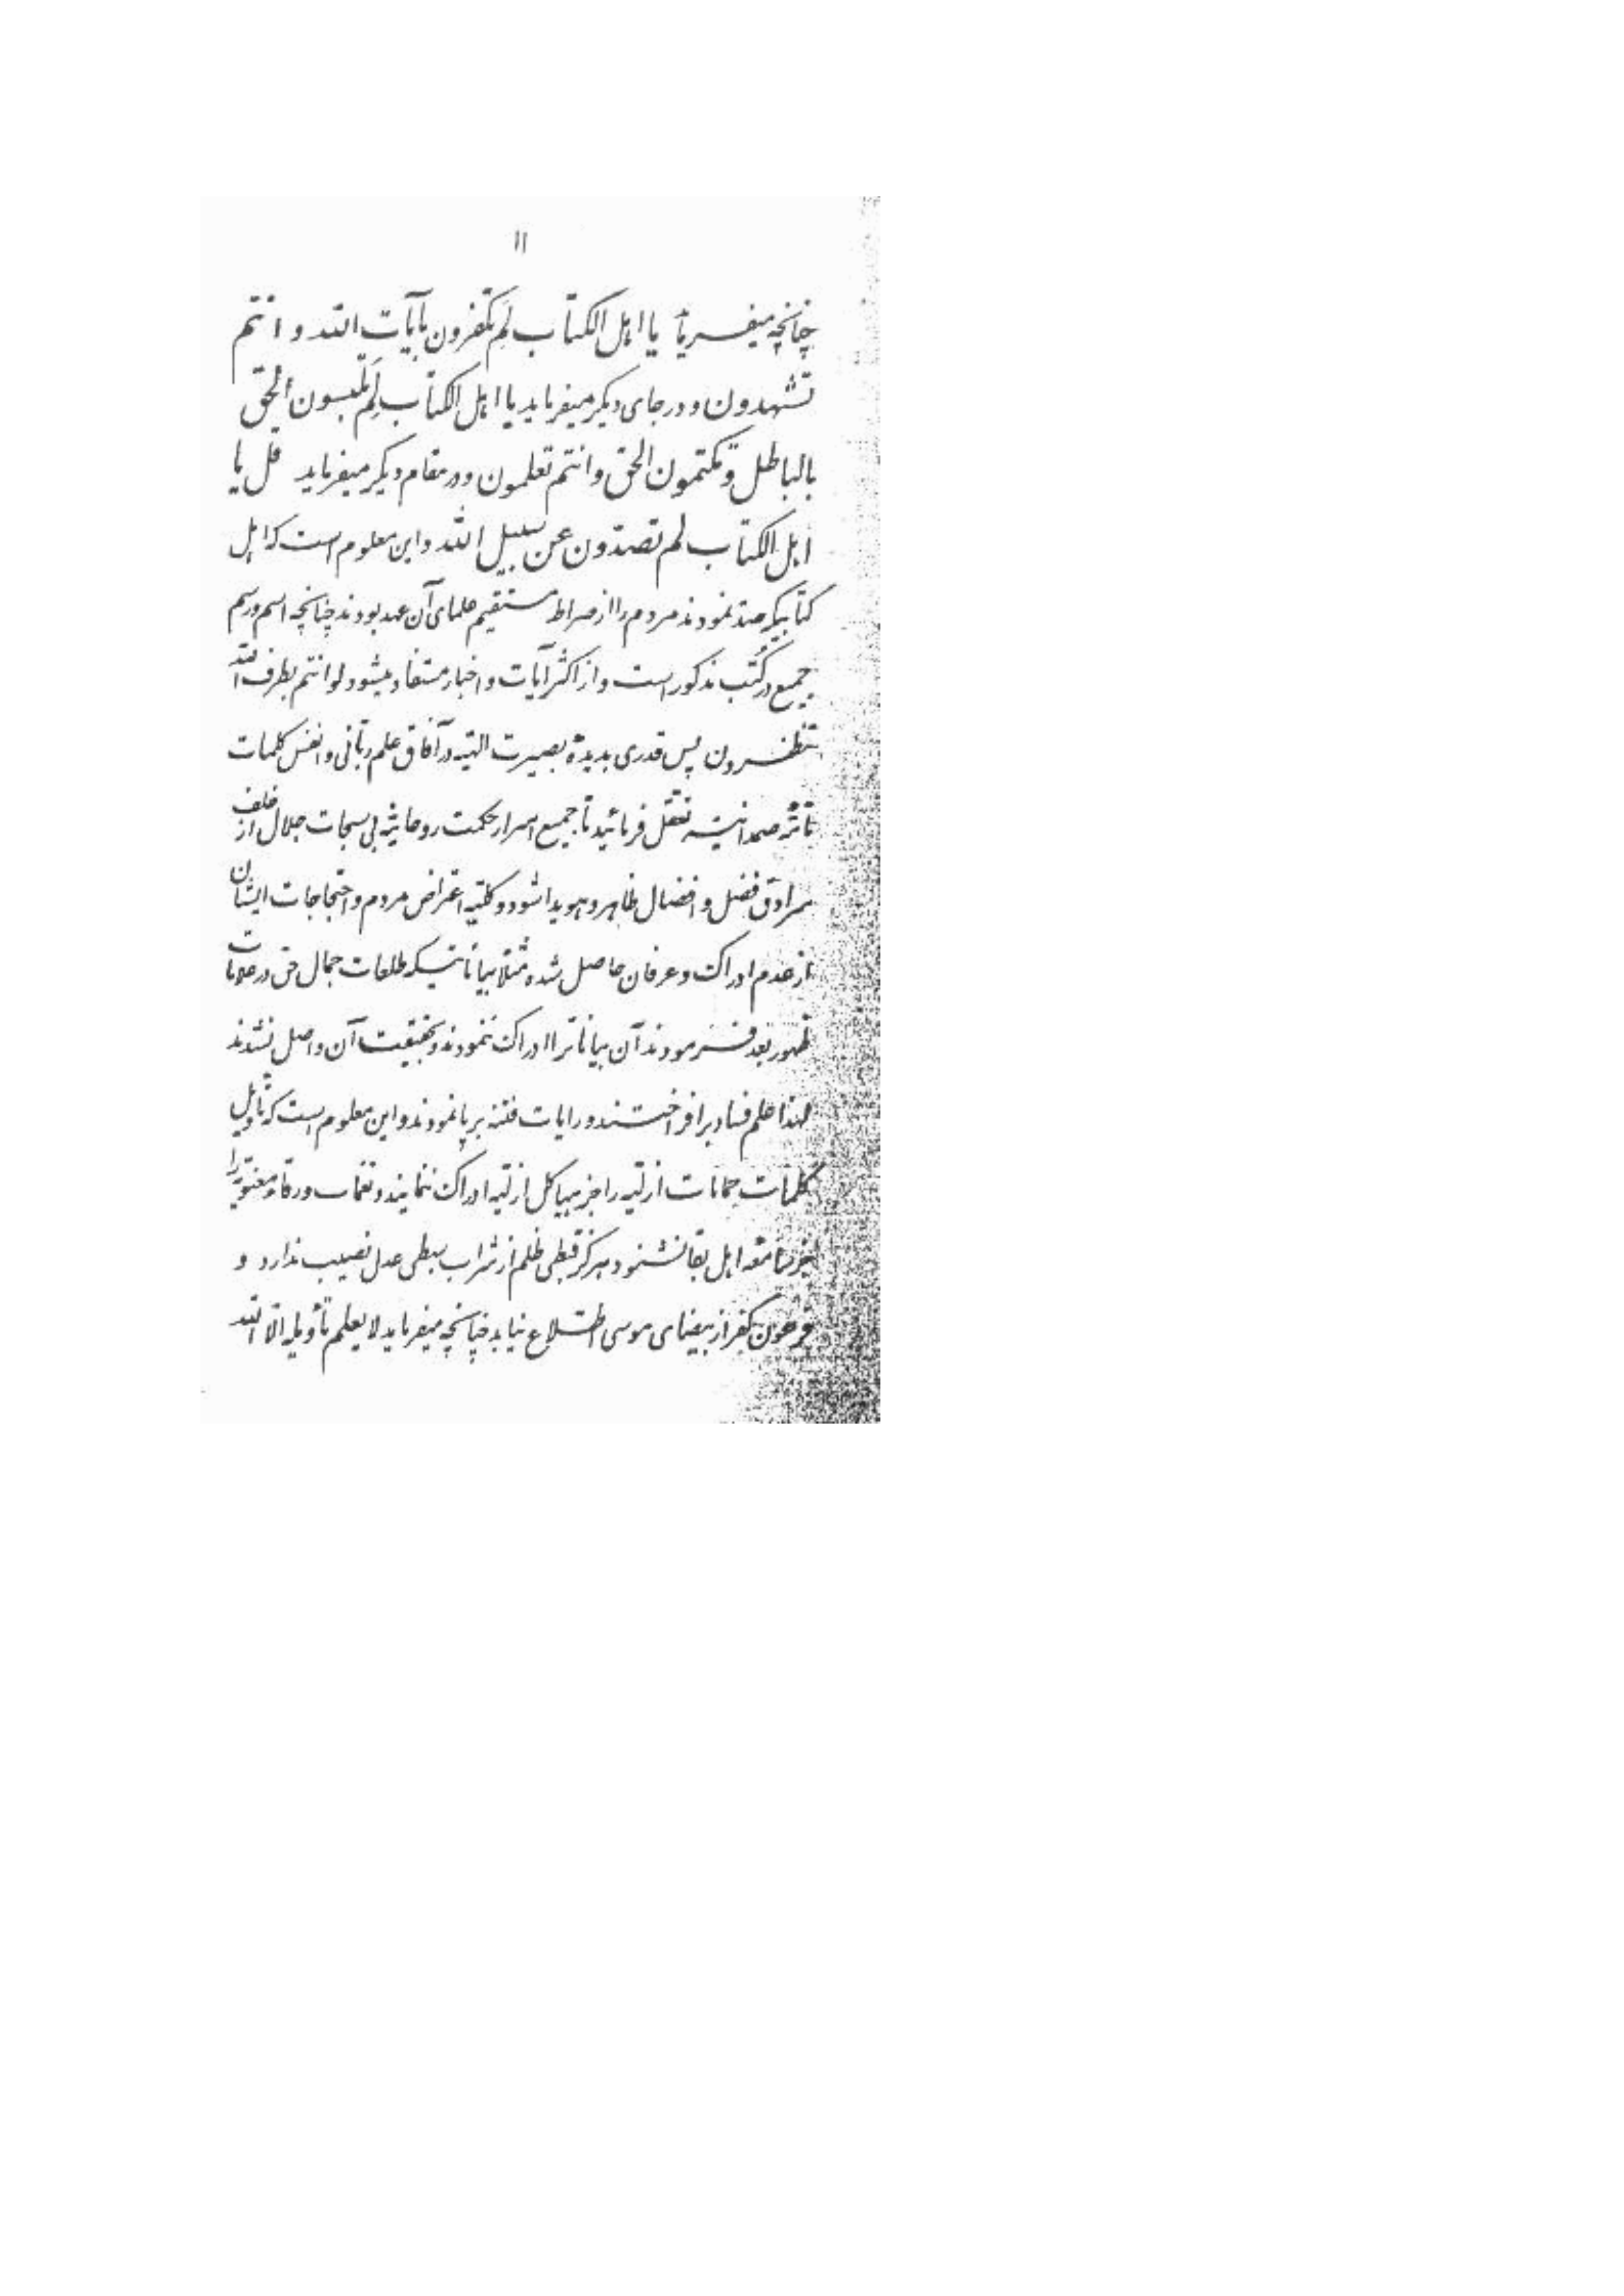 ١١
چنانچه میفرماید یا اهل الکتاب لِمَ تکفرون بآیات اللّه و انتم
تشهدون و در جای دیگر میفرماید یا اهل الکتاب لِمَ تَلبسون الحق
بالباطل و تکتمون الحق و انتم تعلمون و در مقام دیگر میفرماید قل یا
اهل الکتاب لم تصدّون عن سبیل اللّه و این معلوم است که اهل
کتابیکه صد نمودند مردم را از صراط مستقیم علمای آن عهد بودند چنانچه اسم و رسم
جمیع در کُتب مذکور است و از اکثر آیات و اخبار مستفاد میشود لو انتم بطرف اللّه
تنظرون پس قدری بدیدهٔ بصیرت الهیّه در آفاق علم ربّانی و انفس کلمات
تامّهٔ صمدانیّه تعقّل فرمائید تا جمیع اسرار حکمت روحانیّه بی سبحات جلال از خلف
سرادق فضل و افضال ظاهر و هویدا شود و کلیّه اعتراض مردم و احتجاجات ایشان
از عدم ادراک و عرفان حاصل شده مثلاً بیاناتیکه طلعات جمال حق در علامات
ظهور بعد فرمودند آن بیاناترا ادراک ننمودند و بحقیقت آن واصل نشدند
لهذا علم فساد برافراختند و رایات فتنه برپا نمودند و این معلوم است که تأویل
کلمات حمامات ازلیّه را جز هیاکل ازلیّه ادراک ننمایند و نغمات ورقاء معنویّه را
جز سامعه اهل بقا نشنود هرگز قبطی ظلم از شراب سبطی عدل نصیب ندارد و
فرعون کفر از بیضای موسی اطّلاع نیابد چنانچه میفرماید لا یعلم تأویله الّا اللّه